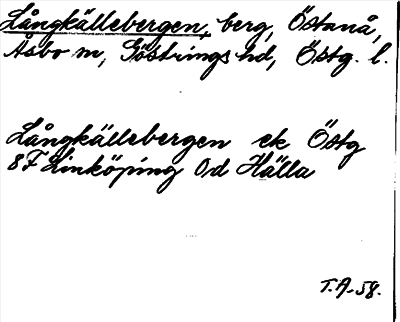 Långkällebergen, berg, Östanå,
Åsbo sn, Göstrings hd, Östg. l.
Långkällebergen ek Östg
8F Linköping 0d Hälla
T.A.-58.